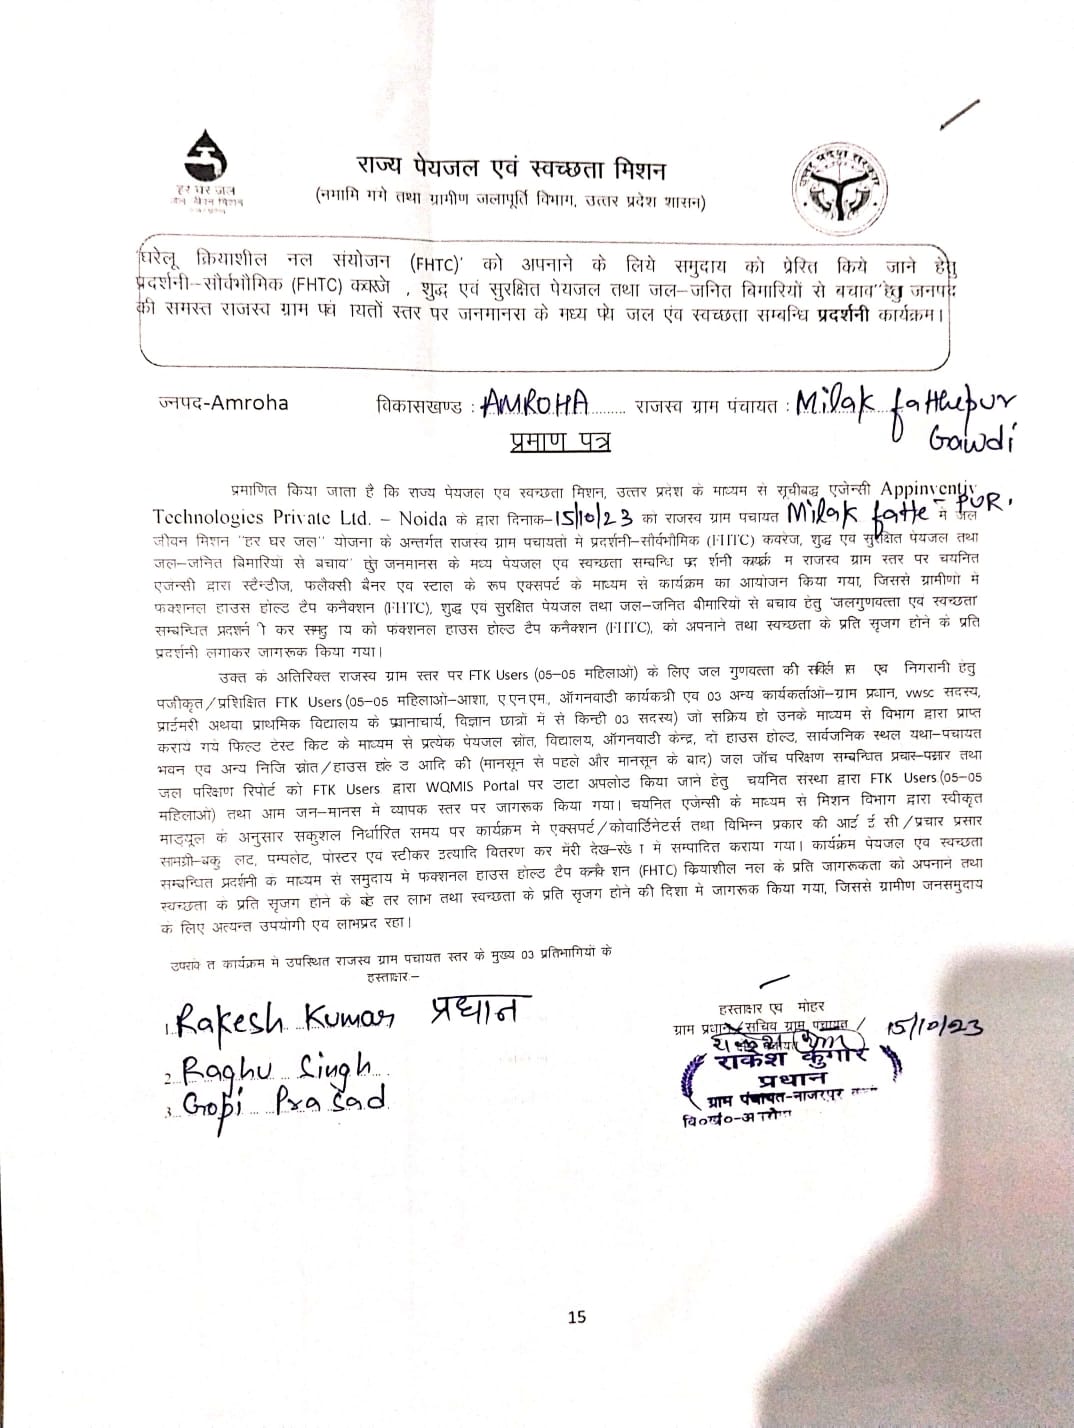 हर घर जल
जल जीवन मिशन
राज्य पेयजल एवं स्वच्छता मिशन
(नमामि गगे तथा ग्रामीण जलापूर्ति विभाग, उत्तर प्रदेश शासन)
उत्तर प्रदेश सरकार
घरेलू क्रियाशील नल संयोजन (FHTC)' को अपनाने के लिये समुदाय को प्रेरित किये जाने हेतु
प्रदर्शनी–सौर्वभौमिक (FHTC) कवरेज , शुद्ध एवं सुरक्षित पेयजल तथा जल–जनित बिमारियों से बचाव"हेतु जनपद
की समस्त राजस्व ग्राम पंचायतों स्तर पर जनमानस के मध्य पेय जल एंव स्वच्छता सम्बन्धि प्रदर्शनी कार्यक्रम।
जनपद-Amroha विकासखण्ड : AMROHA राजस्व ग्राम पंचायत : Milak fatthepur
Gawdi
प्रमाण पत्र
प्रमाणित किया जाता है कि राज्य पेयजल एव स्वच्छता मिशन, उत्तर प्रदेश के माध्यम से सूचीबद्ध एजेन्सी Appinventiv
Technologies Private Ltd. – Noida के द्वारा दिनाक–15/10/23 को राजस्व ग्राम पंचायत Milak fatte - PUR मे जल
जीवन मिशन "हर घर जल" योजना के अन्तर्गत राजस्व ग्राम पंचायतो मे प्रदर्शनी–सौर्वभौमिक (FHTC) कवरेज, शुद्ध एव सुरक्षित पेयजल तथा
जल–जनित बिमारियों से बचाव" हेतु जनमानस के मध्य पेयजल एव स्वच्छता सम्बन्धि प्रदर्शनी म राजस्व ग्राम स्तर पर चयनित
एजन्सी द्वारा स्टैन्डीज, फलैक्सी बैनर एव स्टाल के रूप एक्सपर्ट के माध्यम से कार्यक्रम का आयोजन किया गया, जिससे ग्रामीणो मे
फक्शनल हाउस होल्ड टैप कनैक्शन (FHTC), शुद्ध एवं सुरक्षित पेयजल तथा जल–जनित बीमारियो से बचाव हेतु 'जलगुणवत्ता एव स्वच्छता'
सम्बन्धित प्रदर्शनी कर समुदाय को फक्शनल हाउस होल्ड टैप कनैक्शन (FHTC), को अपनाने तथा स्वच्छता के प्रति सृजग होने के प्रति
प्रदर्शनी लगाकर जागरूक किया गया।
उक्त के अतिरिक्त राजस्व ग्राम स्तर पर FTK Users (05–05 महिलाओ) के लिए जल गुणवत्ता की एव निगरानी हेतु
पजीकृत/प्रशिक्षित FTK Users (05–05 महिलाओ–आशा, ए.एन.एम., ऑगनवाडी कार्यकत्री एव 03 अन्य कार्यकर्ताओ–ग्राम प्रधान, vwsc सदस्य,
प्राईमरी अथवा प्राथमिक विद्यालय के प्रधानाचार्य, विज्ञान छात्रों में से किन्ही 03 सदस्य) जो सक्रिय हो उनके माध्यम से विभाग द्वारा प्राप्त
कराये गये फिल्ड टेस्ट किट के माध्यम से प्रत्येक पेयजल स्रोत, विद्यालय, ऑगनवाडी केन्द्र, दो हाउस होल्ड, सार्वजनिक स्थल यथा–पचायत
भवन एव अन्य निजि स्रोत/हाउस होल्ड आदि की (मानसून से पहले और मानसून के बाद) जल जॉच परिक्षण सम्बन्धित प्रचार–प्रसार तथा
जल परिक्षण रिपोर्ट को FTK Users द्वारा WQMIS Portal पर डाटा अपलोड किया जाने हेतु चयनित संस्था द्वारा FTK Users (05–05
महिलाओ) तथा आम जन–मानस मे व्यापक स्तर पर जागरूक किया गया। चयनित एजेन्सी के माध्यम से मिशन विभाग द्वारा स्वीकृत
माड्यूल के अनुसार सकुशल निर्धारित समय पर कार्यक्रम मे एक्सपर्ट/कोवार्डिनेटर्स तथा विभिन्न प्रकार की आई ई सी/प्रचार प्रसार
सामग्री–बुकलेट, पम्पलेट, पोस्टर एव स्टीकर इत्यादि वितरण कर मेरी देख–रेख मे सम्पादित कराया गया। कार्यक्रम पेयजल एव स्वच्छता
सम्बन्धित प्रदर्शनी क माध्यम से समुदाय मे फक्शनल हाउस होल्ड टैप कनैक्शन (FHTC) कियाशील नल के प्रति जागरूकता को अपनाने तथा
स्वच्छता के प्रति सृजग होने के बेहतर लाभ तथा स्वच्छता के प्रति सृजग होने की दिशा मे जागरूक किया गया, जिससे ग्रामीण जनसमुदाय
के लिए अत्यन्त उपयोगी एव लाभप्रद रहा।
उपरोक्त कार्यक्रम मे उपस्थित राजस्व ग्राम पचायत स्तर के मुख्य 03 प्रतिभागियो के
हस्ताक्षर–
1. Rakesh Kumar प्रधान
2. Raghu Singh
3. Gopi Prasad
हस्ताक्षर एव मोहर
ग्राम प्रधान/सचिव ग्राम पचायत/
15/10/23
राकेश कुमार
प्रधान
ग्राम पंचायत-नाजरपुर
वि०ख०-अमरोहा
15